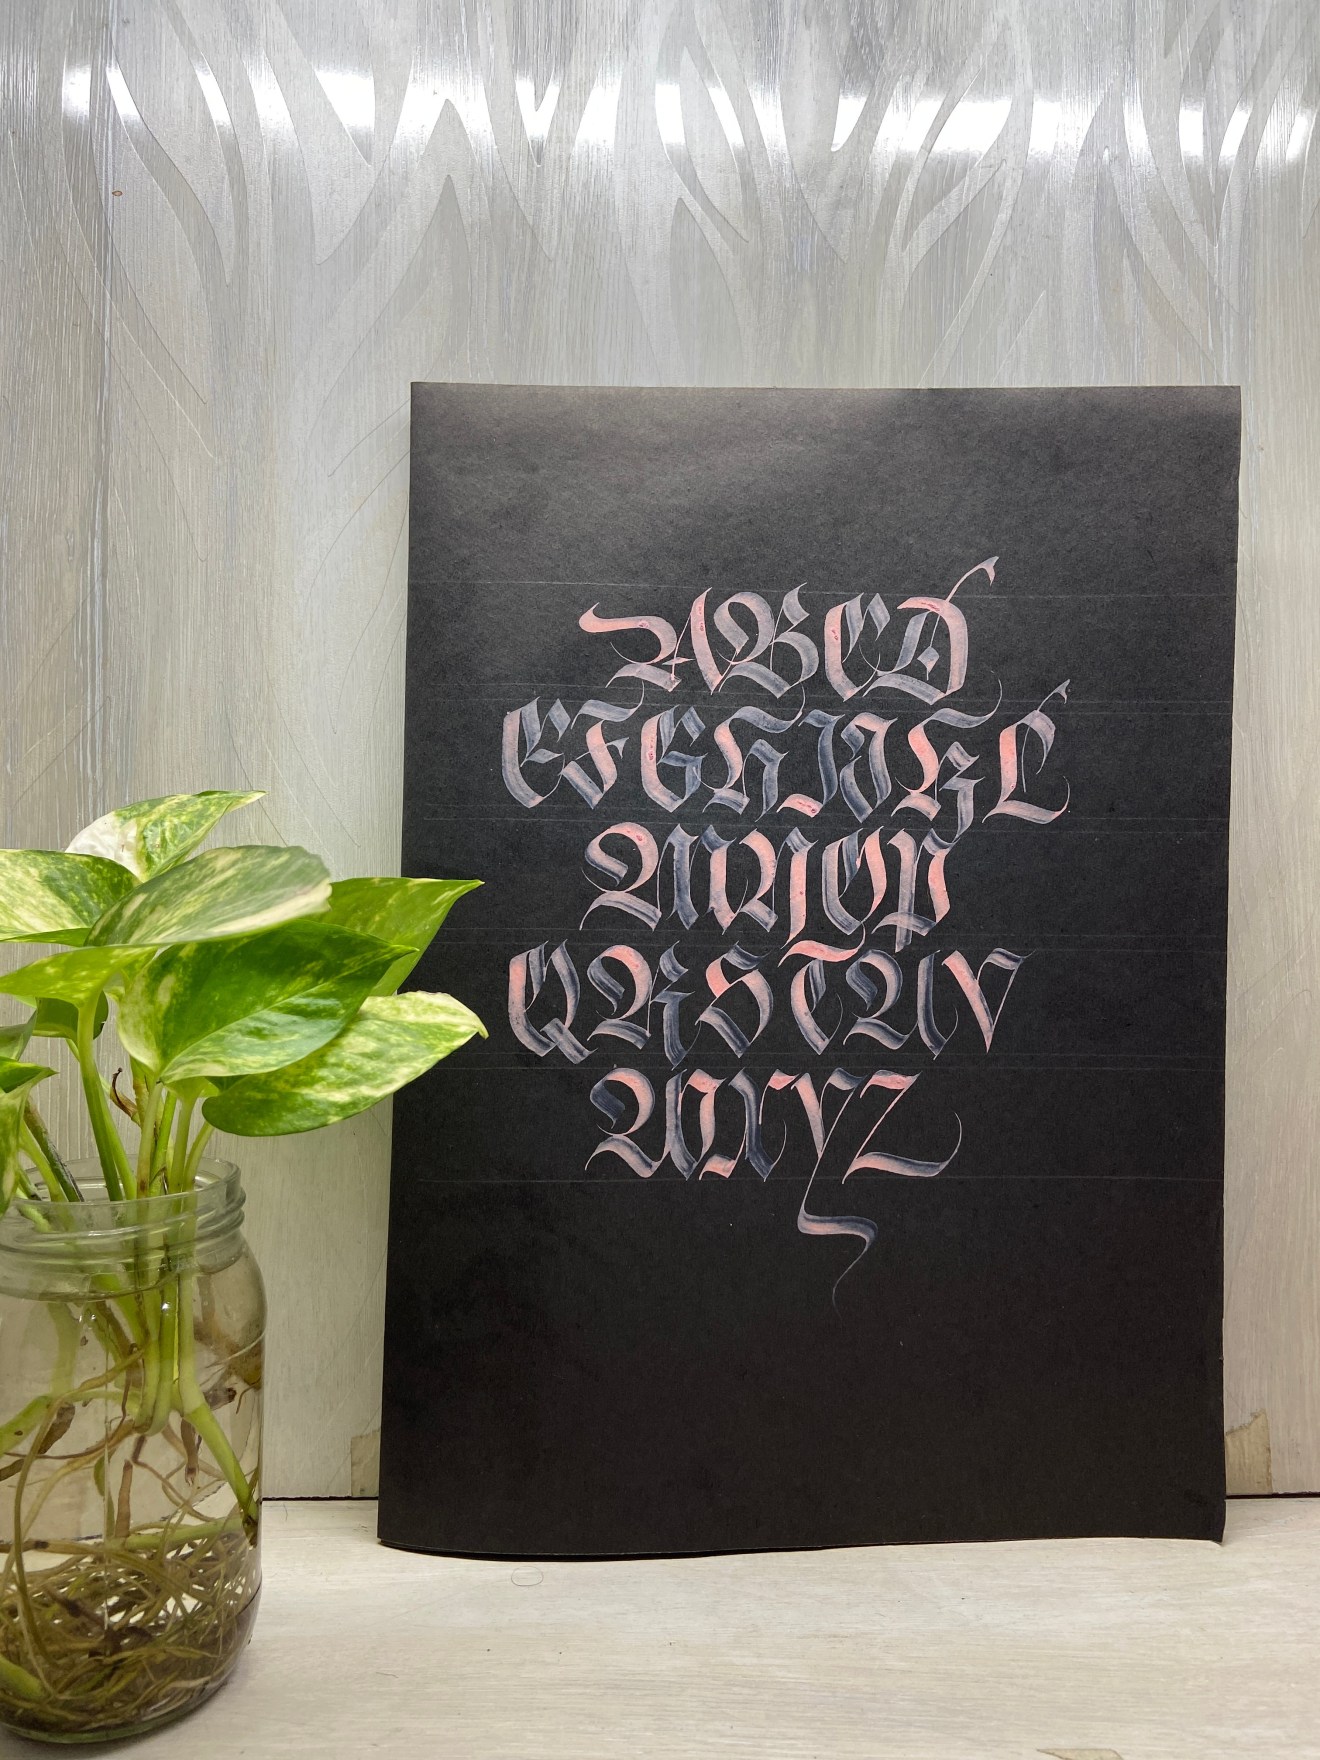 ABCD
EFGHIJKL
MNOP
QRSTUV
WXYZ